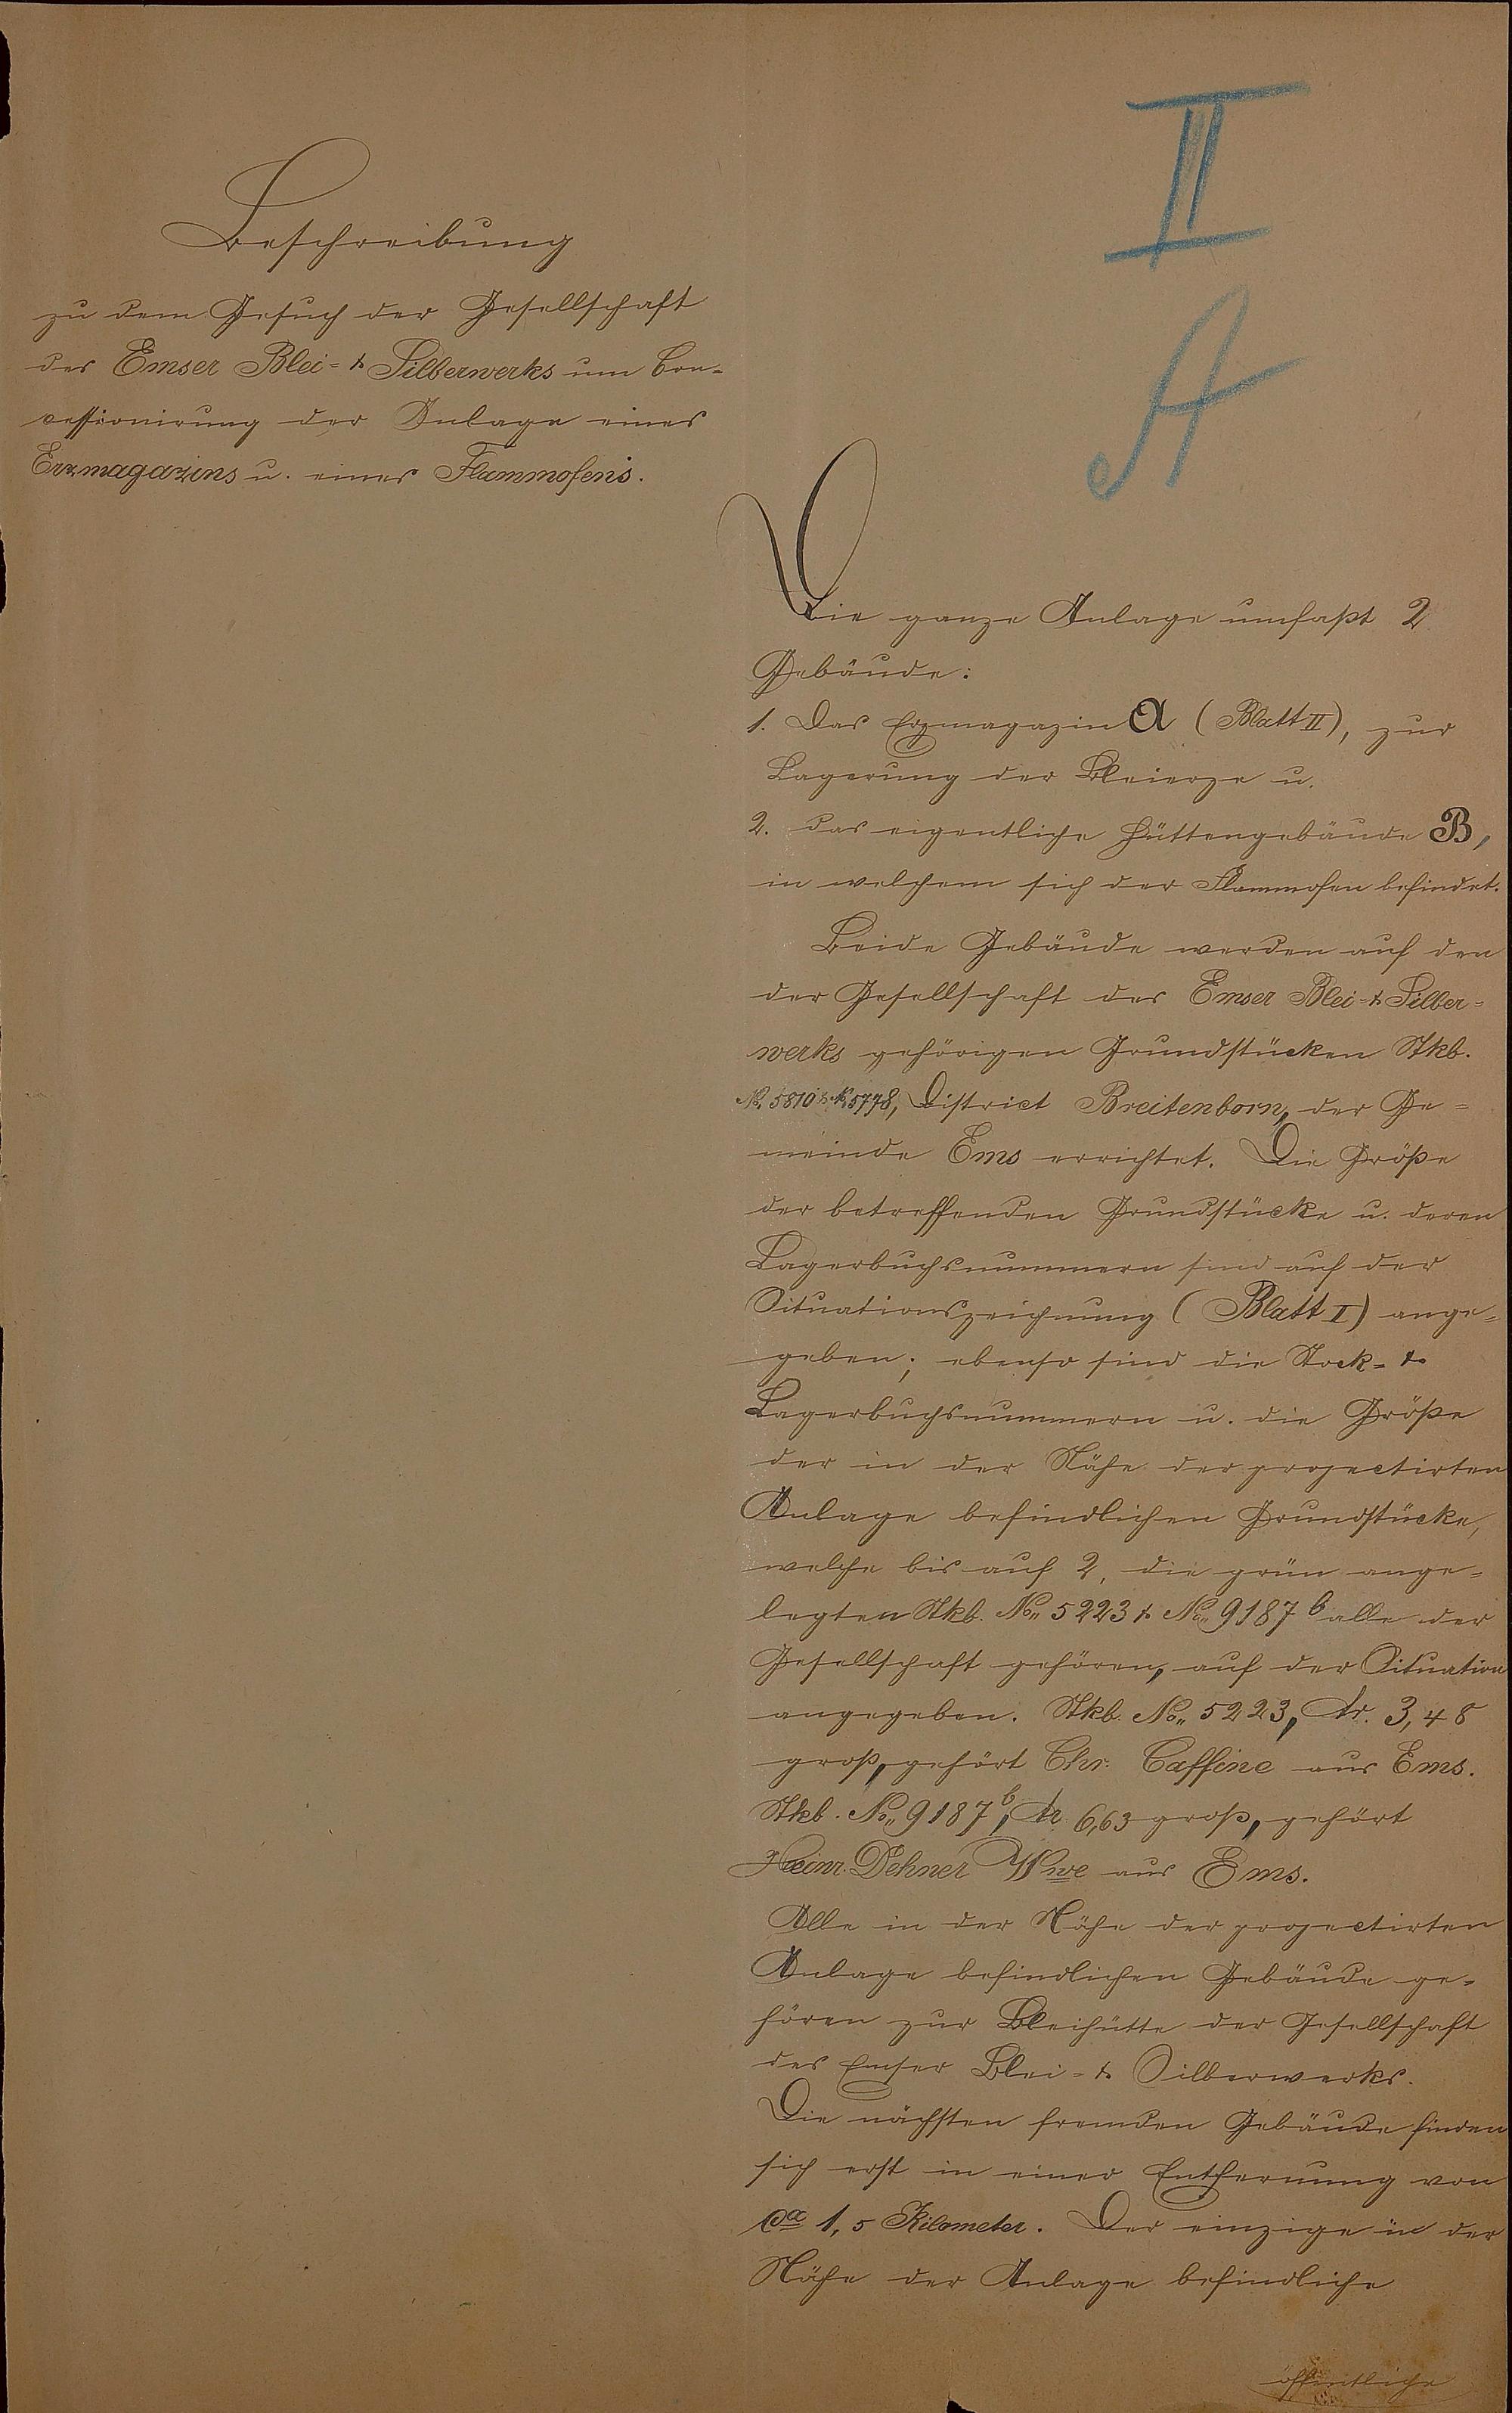 II
A
Beschreibung
zu dem Gesuch der Gesellschaft
des Emser Blei- & Silberwerks um Con-
cessionirung der Anlage eines
Erzmagazins u. eines Flammofens.
Die ganze Anlage umfaßt 2
Gebäude:
1. Das Erzmagazin A (Blatt II), zur
Lagerung der Bleierze u.
2. das eigentliche Hüttengebäude B,
in welchem sich der Flammofen befindet.
Beide Gebäude werden auf den
der Gesellschaft des Emser Blei- & Silber-
werks gehörigen Grundstücken Stkb.
No. 5810 & No. 5778, District Breitenborn, der Ge-
meinde Ems errichtet. Die Größe
der betreffenden Grundstücke u. deren
Lagerbuchsnummern sind auf der
Situationszeichnung (Blatt I) ange-
geben; ebenso sind die Stock- &
Lagerbuchsnummern u. die Größe
der in der Nähe der projectirten
Anlage befindlichen Grundstücke,
welche bis auf 2, die grün ange-
legten Stkb. No. 5223 & No. 9187 b alle der
Gesellschaft gehören, auf der Situation
angegeben. Stkb. No. 5223, Ar. 3,48
groß, gehört Chr. Caffine aus Ems.
Stkb. No. 9187 b, Ar. 6,63 groß, gehört
Heinr. Dehner Wwe aus Ems.
Alle in der Nähe der projectirten
Anlage befindlichen Gebäude ge-
hören zur Bleihütte der Gesellschaft
des Emser Blei- & Silberwerks.
Die nächsten fremden Gebäude finden
sich erst in einer Entfernung von
ca 1,5 Kilometer. Der einzige in der
Nähe der Anlage befindliche
öffentliche